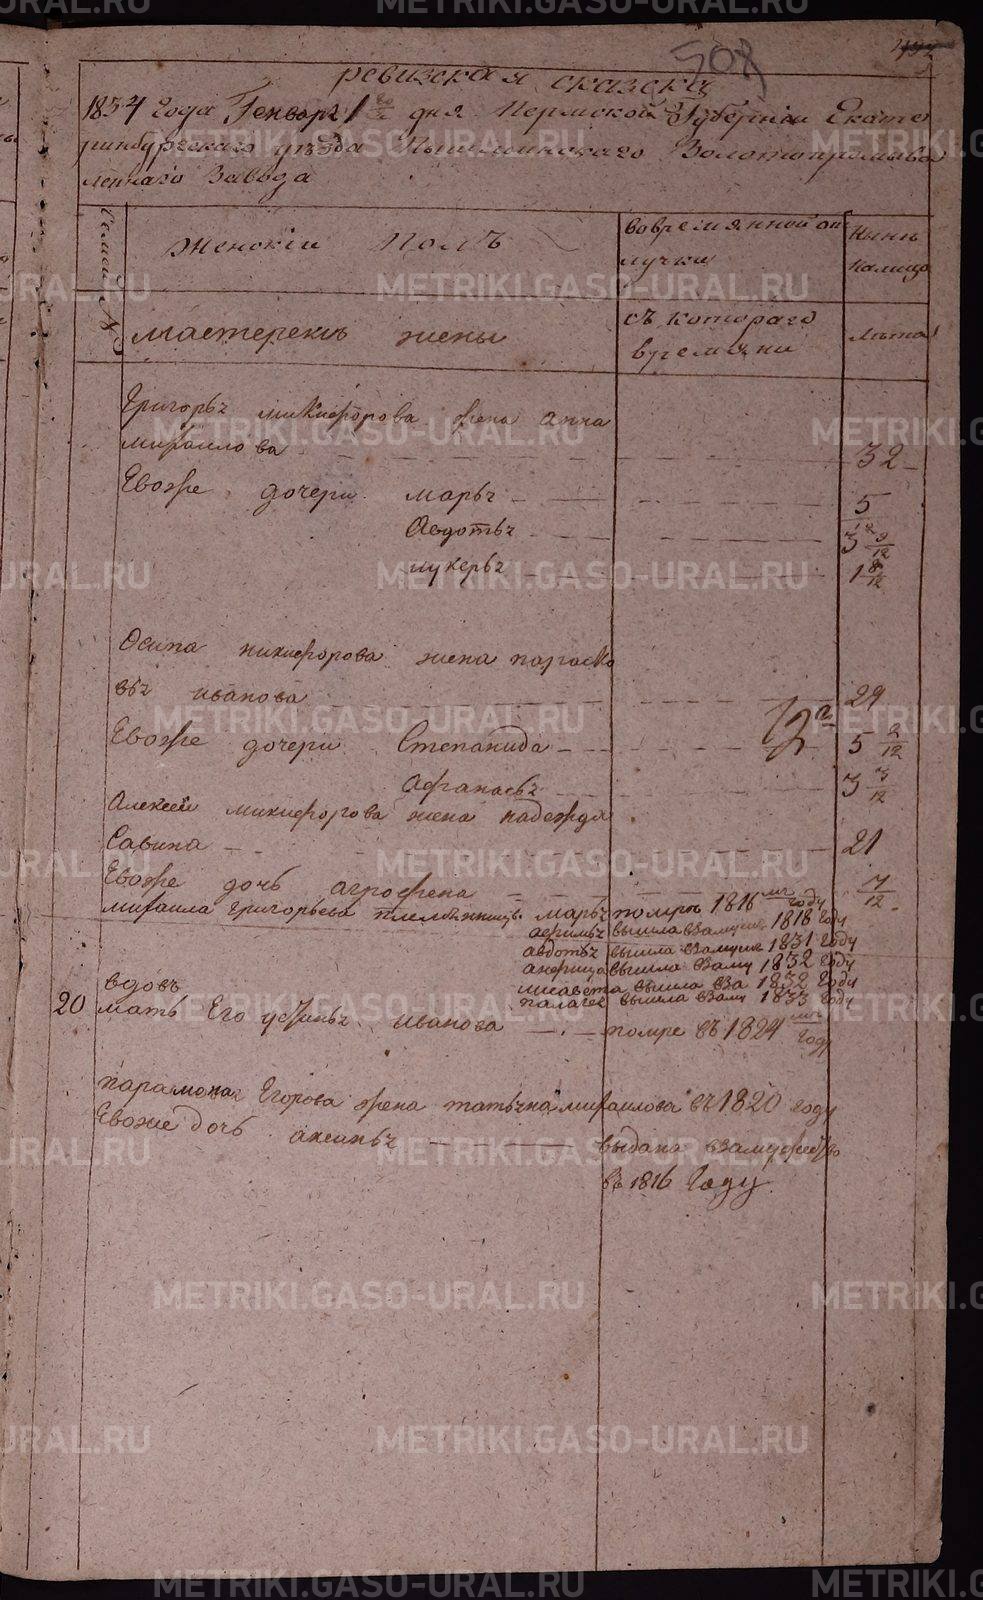 508
ревизская сказска
1834 года Генваря 1 го дня Пермской Губернии Екате
ринбургскаго уезда Пышминскаго Золотопромыва
леннаго Завода
Семей №
Женскiи Полъ
вовремянной от
лучки
Нынѣ
налицо
Мастерскиъ жены
съ котораго
времяни
Лѣта
Григорья микифорова жена анна
михаилова
32
Евоже дочери марья
5
Авдотья
3 9/12
лукерья
1 8/12
Осипа никифорова жена параско
вья иванова
29
Евоже дочери Степанида
5 2/12
Афанасья
3 3/12
Алексеи микифорова жена надежда
Савина
21
Евоже дочь агрофена
7/12
михаила григорьева племянницы марья помре 1816 м году
афимья вышла взамуж 1818 году
авдотья вышла взамуж 1831 году
анфица вышла взаму 1832 году
лисавета вышла вза 1832 году
палагея вышла взаму 1833 году
вдовъ
20 мать Его устинья иванова помре въ 1824 м году
парамона Егорова жена татьяна михаилова въ 1820 году
Евоже дочь аксинья выдана взамужество
въ 1816 Году
METRIKI.GASO-URAL.RU